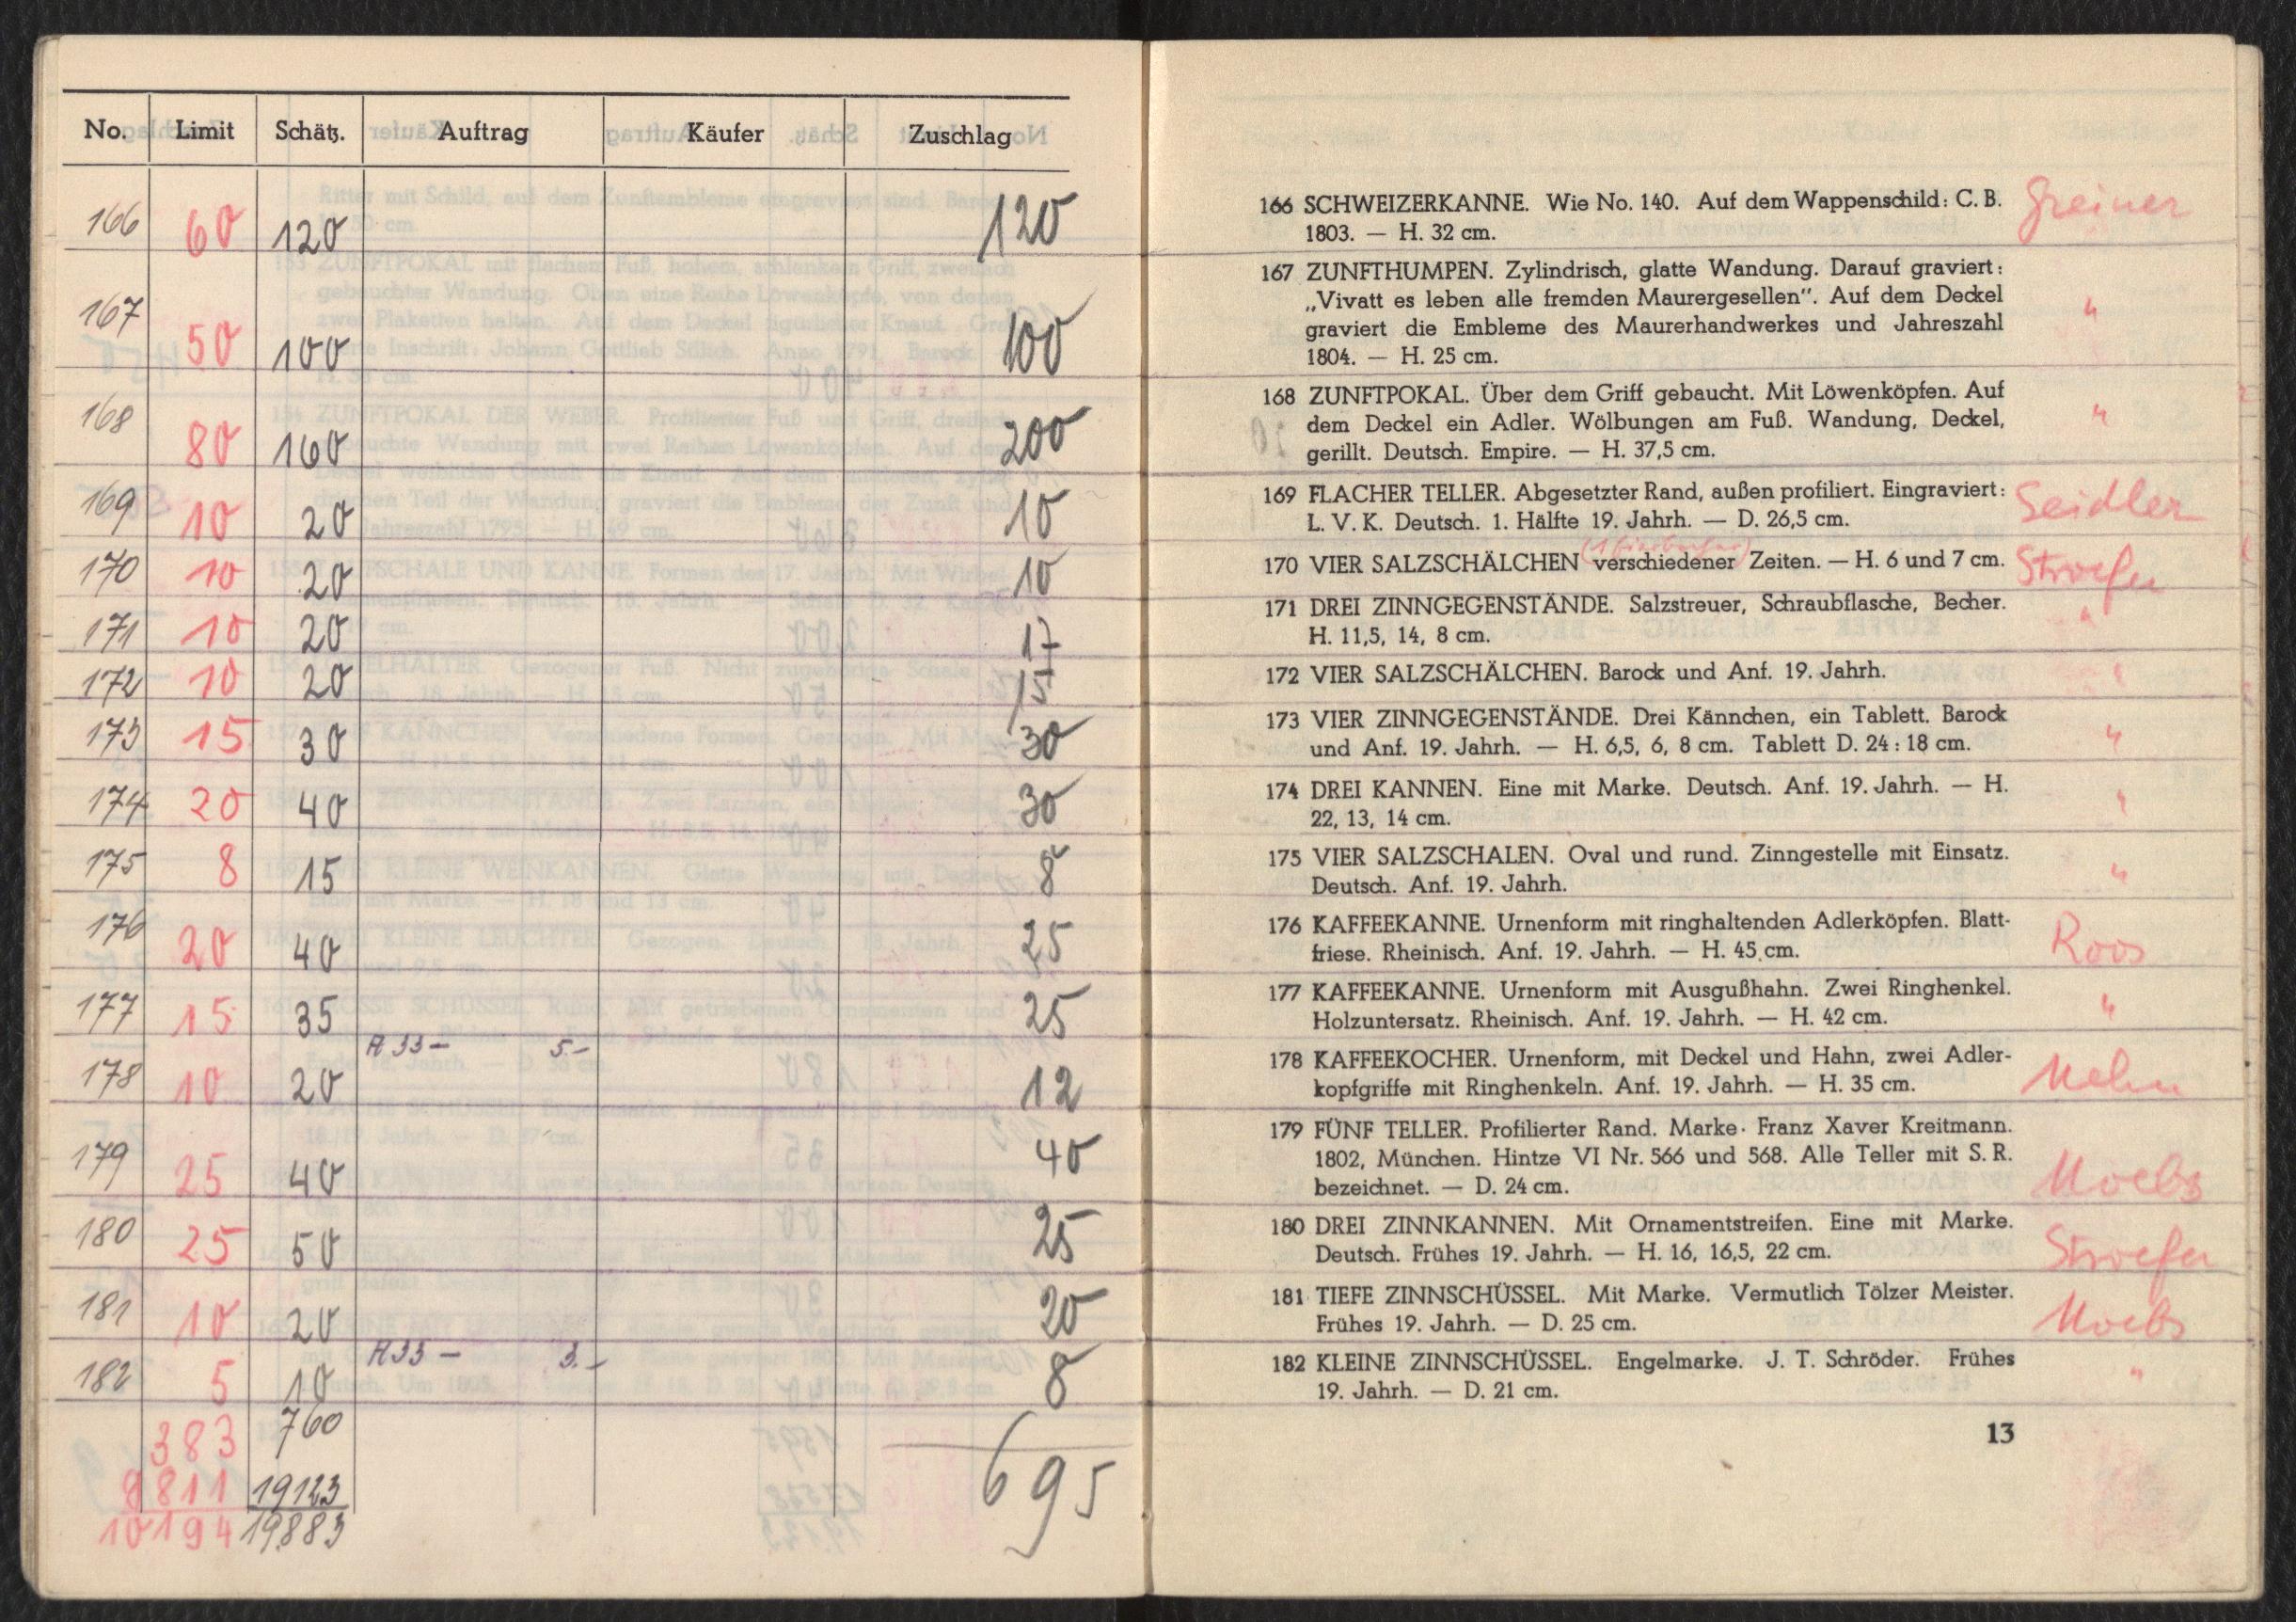 No. Limit Schätz. Auftrag Käufer Zuschlag
166 60 120 120
167 50 100 100
168 80 160 200
169 10 20 10
170 10 20 10
171 10 20 17
172 10 20 15
173 15 30 30
174 20 40 30
175 8 15 8
176 20 40 25
177 15 35 25
178 10 20 A 33 – 5.– 12
179 25 40 40
180 25 50 25
181 10 20 20
182 5 10 A 33 – 3.– 8
383 760
9811 19123 695
10194 19883
166 SCHWEIZERKANNE. Wie No. 140. Auf dem Wappenschild: C. B. Greiner
1803. — H. 32 cm.
167 ZUNFTHUMPEN. Zylindrisch, glatte Wandung. Darauf graviert:
„Vivatt es leben alle fremden Maurergesellen“. Auf dem Deckel "
graviert die Embleme des Maurerhandwerkes und Jahreszahl
1804. — H. 25 cm.
168 ZUNFTPOKAL. Über dem Griff gebaucht. Mit Löwenköpfen. Auf
dem Deckel ein Adler. Wölbungen am Fuß. Wandung, Deckel, "
gerillt. Deutsch. Empire. — H. 37,5 cm.
169 FLACHER TELLER. Abgesetzter Rand, außen profiliert. Eingraviert: Seidler
L. V. K. Deutsch. 1. Hälfte 19. Jahrh. — D. 26,5 cm.
170 VIER SALZSCHÄLCHEN verschiedener Zeiten. — H. 6 und 7 cm. Stroefer
171 DREI ZINNGEGENSTÄNDE. Salzstreuer, Schraubflasche, Becher. "
H. 11,5, 14, 8 cm.
172 VIER SALZSCHÄLCHEN. Barock und Anf. 19. Jahrh. "
173 VIER ZINNGEGENSTÄNDE. Drei Kännchen, ein Tablett. Barock "
und Anf. 19. Jahrh. — H. 6,5, 6, 8 cm. Tablett D. 24 : 18 cm.
174 DREI KANNEN. Eine mit Marke. Deutsch. Anf. 19. Jahrh. — H. "
22, 13, 14 cm.
175 VIER SALZSCHALEN. Oval und rund. Zinngestelle mit Einsatz. "
Deutsch. Anf. 19. Jahrh.
176 KAFFEEKANNE. Urnenform mit ringhaltenden Adlerköpfen. Blatt-
friese. Rheinisch. Anf. 19. Jahrh. — H. 45 cm. Roos
177 KAFFEEKANNE. Urnenform mit Ausgußhahn. Zwei Ringhenkel. "
Holzuntersatz. Rheinisch. Anf. 19. Jahrh. — H. 42 cm.
178 KAFFEEKOCHER. Urnenform, mit Deckel und Hahn, zwei Adler-
kopfgriffe mit Ringhenkeln. Anf. 19. Jahrh. — H. 35 cm.
179 FÜNF TELLER. Profilierter Rand. Marke· Franz Xaver Kreitmann.
1802, München. Hintze VI Nr. 566 und 568. Alle Teller mit S. R. Moebs
bezeichnet. — D. 24 cm.
180 DREI ZINNKANNEN. Mit Ornamentstreifen. Eine mit Marke. Stroefer
Deutsch. Frühes 19. Jahrh. — H. 16, 16,5, 22 cm.
181 TIEFE ZINNSCHÜSSEL. Mit Marke. Vermutlich Tölzer Meister. Moebs
Frühes 19. Jahrh. — D. 25 cm.
182 KLEINE ZINNSCHÜSSEL. Engelmarke. J. T. Schröder. Frühes "
19. Jahrh. — D. 21 cm.
13